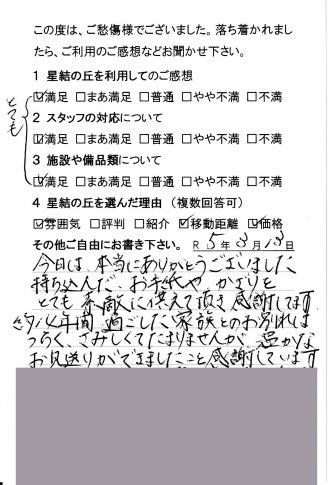 この度は、ご愁傷様でございました。落ち着かれまし
たら、ご利用のご感想などお聞かせ下さい。
1 星結の丘を利用してのご感想
☑満足 □まあ満足 □普通 □やや不満 □不満
とても
2 スタッフの対応について
☑満足 □まあ満足 □普通 □やや不満 □不満
3 施設や備品類について
☑満足 □まあ満足 □普通 □やや不満 □不満
4 星結の丘を選んだ理由 （複数回答可）
☑雰囲気 □評判 □紹介 ☑移動距離 ☑価格
その他ご自由にお書き下さい。 R 5年3月13日
今日は、本当にありがとうございました
持ち込んだ、お手紙や かざりを
とても 素敵に供えて頂き感謝してます
約14年間 過ごした家族とのお別れは
つらく、さみしくてたまりませんが、温かな
お見送りができましたこと感謝しています